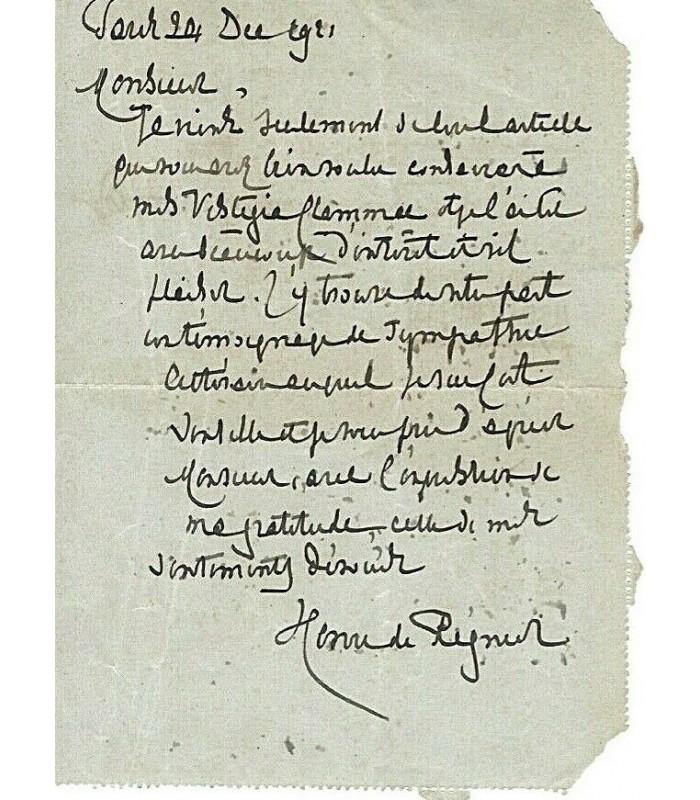 Paris 24 Dec 1921
Monsieur,
Je viens seulement de lire l'article
que vous avez bien voulu consacrer à
mes Vestigia Flammae et je l'ai lu
avec beaucoup d'intérêt et
J'y trouve de votre part
un témoignage de sympathie
littéraire auquel je suis fort
sensible et je vous prie d'agréer
Monsieur, avec l'expression de
ma gratitude, celle de mes
sentiments dévoués
Henri de Régnier